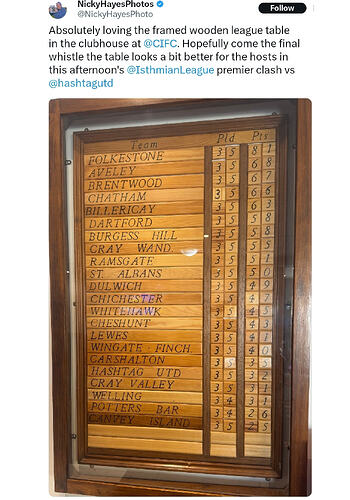 NickyHayesPhotos
@NickyHayesPhoto
Follow
Absolutely loving the framed wooden league table
in the clubhouse at @CIFC. Hopefully come the final
whistle the table looks a bit better for the hosts in
this afternoon's @IsthmianLeague premier clash vs
@hashtagutd
Team Pld Pts
FOLKESTONE 3 5 8 1
AVELEY 3 5 6 8
BRENTWOOD 3 5 6 7
CHATHAM 3 5 6 6
BILLERICAY 3 5 6 3
DARTFORD 3 5 5 8
BURGESS HILL 3 5 5 5
CRAY WAND. 3 5 5
RAMSGATE 3 5 5 1
ST. ALBANS 3 5 5 0
DULWICH 3 5 4 9
CHICHESTER 3 5 4 7
WHITEHAWK 3 5 4
CHESHUNT 3 5 4 3
LEWES 3 5 4 1
WINGATE FINCH. 3 5 4 0
CARSHALTON 3 5 3 5
HASHTAG UTD 3 5 3 2
CRAY VALLEY 3 5 3 1
WELLING 3 4 3 1
POTTERS BAR 3 4 2 6
CANVEY ISLAND 3 5 2 5